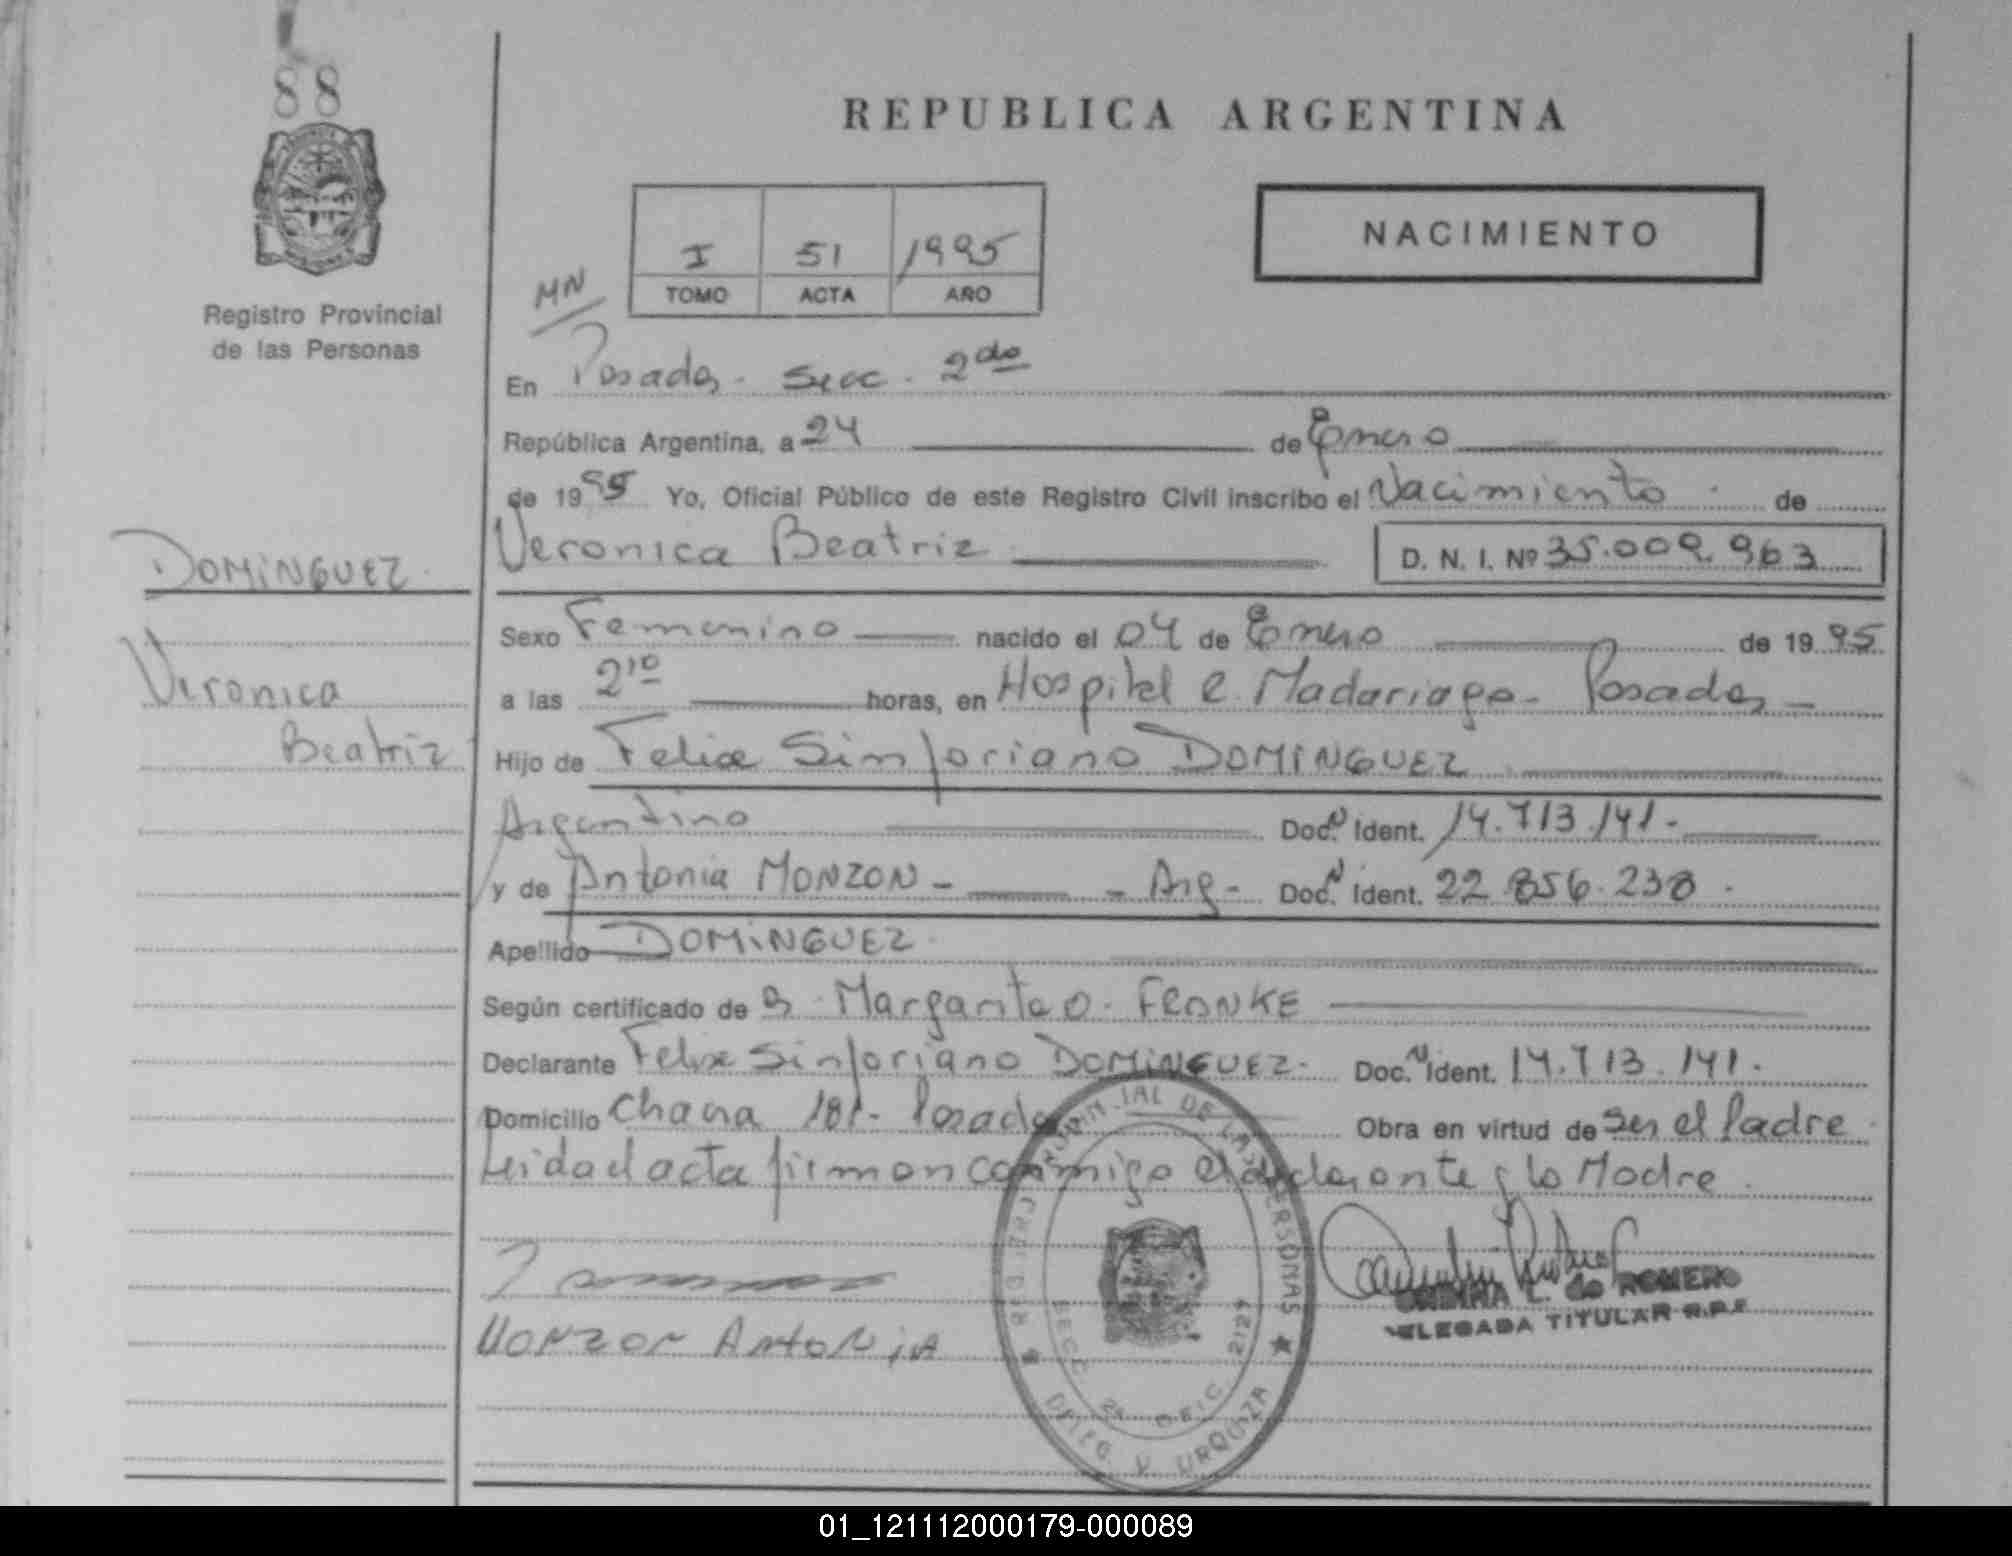 88
REPUBLICA ARGENTINA
NACIMIENTO
I 51 1995
TOMO ACTA AÑO
MN
Registro Provincial
de las Personas
En Posadas - Secc. 2da
República Argentina, a 24 de Enero
de 1995 Yo, Oficial Público de este Registro Civil inscribo el Nacimiento de
Veronica Beatriz D. N. I. Nº 35.009.963
DOMINGUEZ
Veronica
Beatriz
Sexo Femenino nacido el 04 de Enero de 1995
a las 2 10 horas, en Hospital R. Madariaga - Posadas -
Hijo de Felix Sinforiano DOMINGUEZ
Argentino Doc. N Ident. 14.713.141.-
y de Antonia MONZON - - Arg - Doc. N Ident. 22.856.238.
Apellido DOMINGUEZ
Según certificado de Margarita O. FRANKE
Declarante Felix Sinforiano DOMINGUEZ - Doc. N Ident. 14.713.141.
Domicilio 181 - Posadas Obra en virtud de ser el Padre
Leida el acta firman conmigo el declarante y la Madre.
MONZON ANTONIA
L. de ROMERO
DELEGADA TITULAR R.P.P.
REGISTRO PROVINCIAL DE LAS PERSONAS
SECC. 2a OFIC. 2127
DELEG. V. URQUIZA
01_121112000179-000089